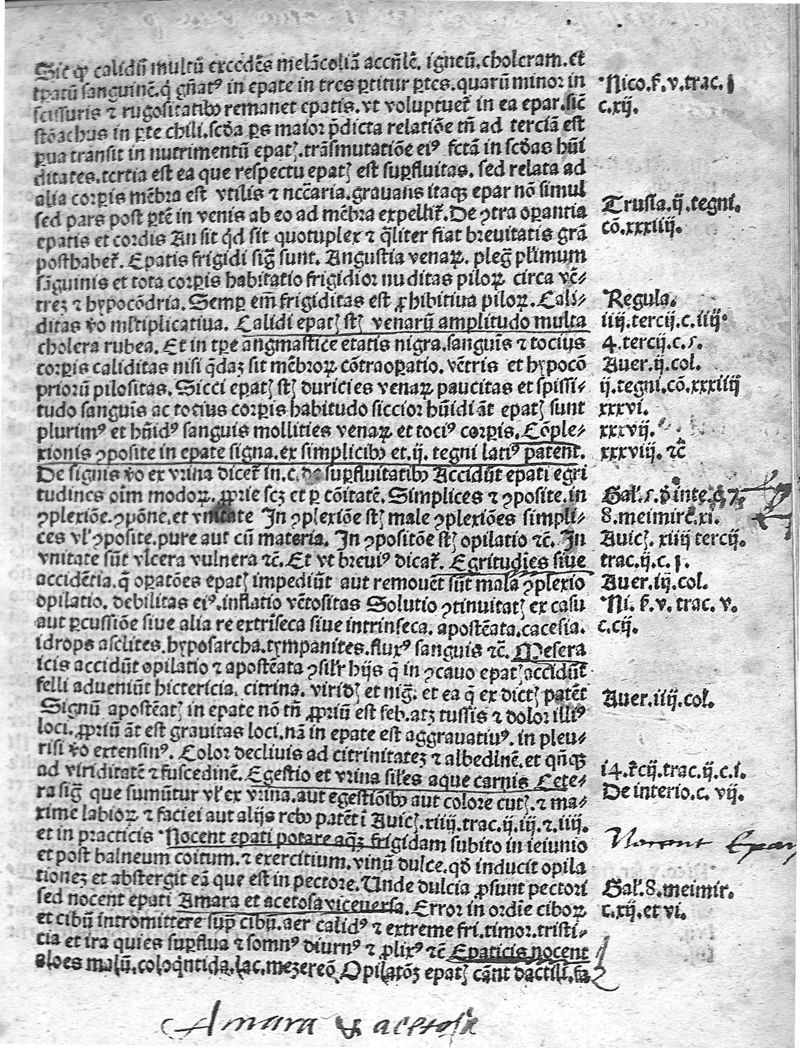 Sic ꝙ calidū multū excedēs melācoliā accñlē. igneū. choleram. et
tꝑatū sanguinē. q̇ gñatꝰ in epate in tres ꝑtitur ꝑtes. quarū minor in
scissuris ⁊ rugositatibꝰ remanet epatis. vt voluptueṫ in ea epar. sič
stōachus in ꝑte chili. scḋa ꝑs maior p̄dicta relatiōe tñ ad terciā est
ꝑua transit in nutrimentū epatꝭ. trāsmutatiōe eiꝰ fctā in scḋas hūi
ditates. tertia est ea que respectu epatꝭ est suꝑfluitas. sed relata ad
alia corꝑis mēbra est vtilis ⁊ nccāria. grauans itaqꝫ epar nō simul
sed pars post ꝑtē in venis ab eo ad mēbra expelliť. De ꝯtra oꝑantia
epatis et cordis An sit qḋ sit quotuplex ⁊ q̇liter fiat breuitatis grā
posthabeť. Epatis frigidi sig̃ sunt. Angustia venaꝝ. pleg̃ pl̄imum
sāguinis et tota corꝑis habitatio frigidior nuditas piloꝝ circa vē⸗
trez ⁊ hypocōdria. Semꝑ em̄ frigiditas est ꝓhibitiua piloꝝ. Cali⸗
ditas v̊o ml̄tiplicatiua. Calidi epatꝭ st̄ꝫ venarū amplitudo multa
cholera rubea. Et in tꝑe augmastice etatis nigra. sanguīs ⁊ tocius
corꝑis caliditas nisi q̇daꝫ sit mēbroꝝ cōtraoꝑatio. vētris et hypocō
priorū pilositas. Sicci epatꝭ st̄ꝫ duricies venaꝝ paucitas et spissi⸗
tudo sanguīs ac tocius corꝑis habitudo siccior hūidi āt epatꝭ sunt
plurimꝰ et hūidꝰ sanguis mollities venaꝝ et tociꝰ corꝑis. Cōple⸗
xionis ꝯposite in epate signa. ex simplicibꝰ et. ij. tegni latiꝰ patent.
De signis v̊o ex vrina diceť in. c. de suꝑfluitatibꝰ Accidūt epati egri
tudines oīm modoꝝ. ꝓprie scꝫ et ꝑ cōitatē. Simplices ⁊ ꝯposite. in
ꝯplexiōe. ꝯpōne. et vnitate In ꝯplexiōe st̄ꝫ male ꝯplexiōes simpli⸗
ces vl̄ ꝯposite. pure aut cū materia. In ꝯpositōe st̄ꝫ opilatio ⁊c̄. In
vnitate sūt vlcera vulnera ⁊c̄. Et vt breuiꝰ dicať. Egritudīes siue
accidētia. q̄ oꝑatōes epatꝭ impediūt aut remouēt sūt mala ꝯplexio
opilatio. debilitas eiꝰ. inflatio vētositas Solutio ꝯtinuitatꝭ ex casu
aut ꝑcussiōe siue alia re extriseca siue intrinseca. apostēata. cacesia.
idrops asclites. hyposarcha. tympanites. fluxꝰ sanguis ⁊c̄. Mesera
icis accidūt opilatio ⁊ apostēata ꝯsil̄r hijs q̄ in ꝯcauo epatꝭ accidūt
felli adueniūt hictericia. citrina. viridꝭ et nig̃. et ea q̄ ex dictꝭ patēt
Signū apostēatꝭ in epate nō tn̄ ꝓpriū est feb. atꝫ tussis ⁊ dolor illiꝰ
loci. ꝓpriū āt est grauitas loci. nā in epate est aggrauatiuꝰ. in pleu⸗
risi v̊o extensiuꝰ. Color decliuis ad citrinitatez ⁊ albedinē. et qn̄qꝫ
ad viriditatē ⁊ fuscedinē. Egestio et vrina sil̄es aque carnis Cete⸗
ra sig̃ que sumūtur vl̄ ex vrina. aut egestiōibꝰ aut colore cutꝭ. ⁊ ma⸗
xime labioꝝ ⁊ faciei aut alijs rebꝰ patēt ī Auič. xiiij. trac. ij. iij. ⁊. iiij.
et in practicis Nocent epati potare aqꝫ frigidam subito in ieiunio
et post balneum coitum. ⁊ exercitium. vinū dulce. qḋ inducit opila
tionez et abstergit eā que est in pectore. Unde dulcia ꝓsunt pectori
sed nocent epati Amara et acetosa viceuersa. Error in ordīe ciboꝝ
et cibū intromittere suꝑ cibū. aer calidꝰ ⁊ extreme fri. timor. tristi⸗
cia et ira quies suꝑflua ⁊ somnꝰ diurnꝰ ⁊ ꝓlixꝰ ⁊c̄ Epaticis nocent
aloes malū. coloq̇ntida. lac. mezereō. Opilatōꝫ epatꝭ cānt dactili.
Nico. f̄. v. trac. j
c. xij.
Trusia. ij. tegni.
cō. xxxiiij.
Regula.
iiij. tercij. c. iiij
4. tercij. c. 5.
Auer. ij. col.
ij. tegni. cō. xxxiiij
xxxvi.
xxxvij.
xxxviij. ⁊c̄
Gal̄. 5. ḋ inte. ⁊. 7.
8. meimir̄. xi.
Auič. xiiij tercij.
trac. ij. c. j.
Auer. iij. col.
Ni. f̄. v. trac. v.
c. cij.
Auer. iiij. col.
14. ťcij. trac. ij. c. i.
De interio. c. vij.
Nocent Epar
Gal̄. 8. meimir.
c. xij. et vi.
Amara & acetosa